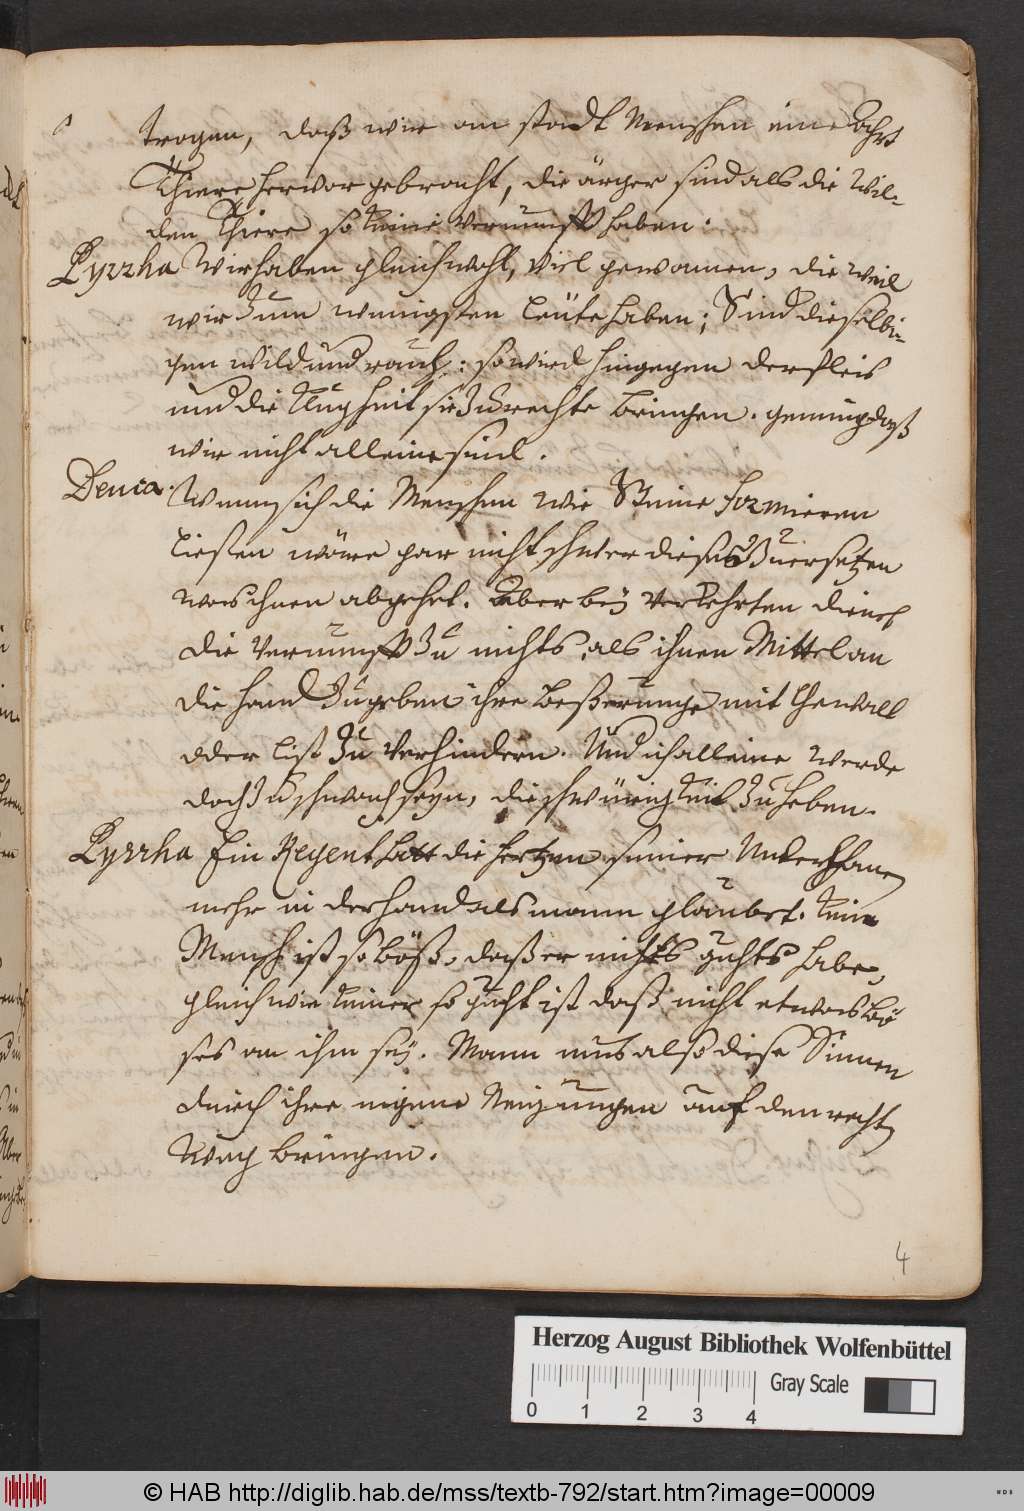 trogen, daß wir an stadt Menschen eine Ahrt
Thiere hervor gebracht, die ärger sind als die Wil-
den Thiere so keine vernunfft haben.
Pyrrha Wir haben gleichwohl, viel gewonnen, die weil
wir zum wenigsten leüte haben; Sind dieselbi-
gen wild und rauch: so wird hingegen der fleis
und die Klugheit sie zu rechte bringen. genung daß
wir nicht alleine sind.
Deuca. Wenn sich die Menschen wie Steine formieren
ließen wäre gar nicht schwer dieses zu ersetzen
was ihnen abgehet. Aber beÿ Verkehrten dienet
die Vernunfft zu nichts, als ihnen Mittel an
die hand zu geben ihre beßerunge mit Gewalt
oder list zu verhindern. Und ich alleine werde
doch zu schwach seyn, die schwürigkeit zu heben.
Pyrrha Ein Regent hatt die hertzen seiner Unterthanen
mehr in der hand als mann glaubet. kein
Mensch ist so böß, daß er nichts guhts habe,
gleich wie keiner so guht ist daß nicht etwas bö
ses an ihm seÿ. Mann mus also diese Sinnen
durch ihre eigene Neigungen auf den rechten
Weg bringen.
4
Herzog August Bibliothek Wolfenbüttel
Gray Scale
0 1 2 3 4
© HAB http://diglib.hab.de/mss/textb-792/start.htm?image=00009